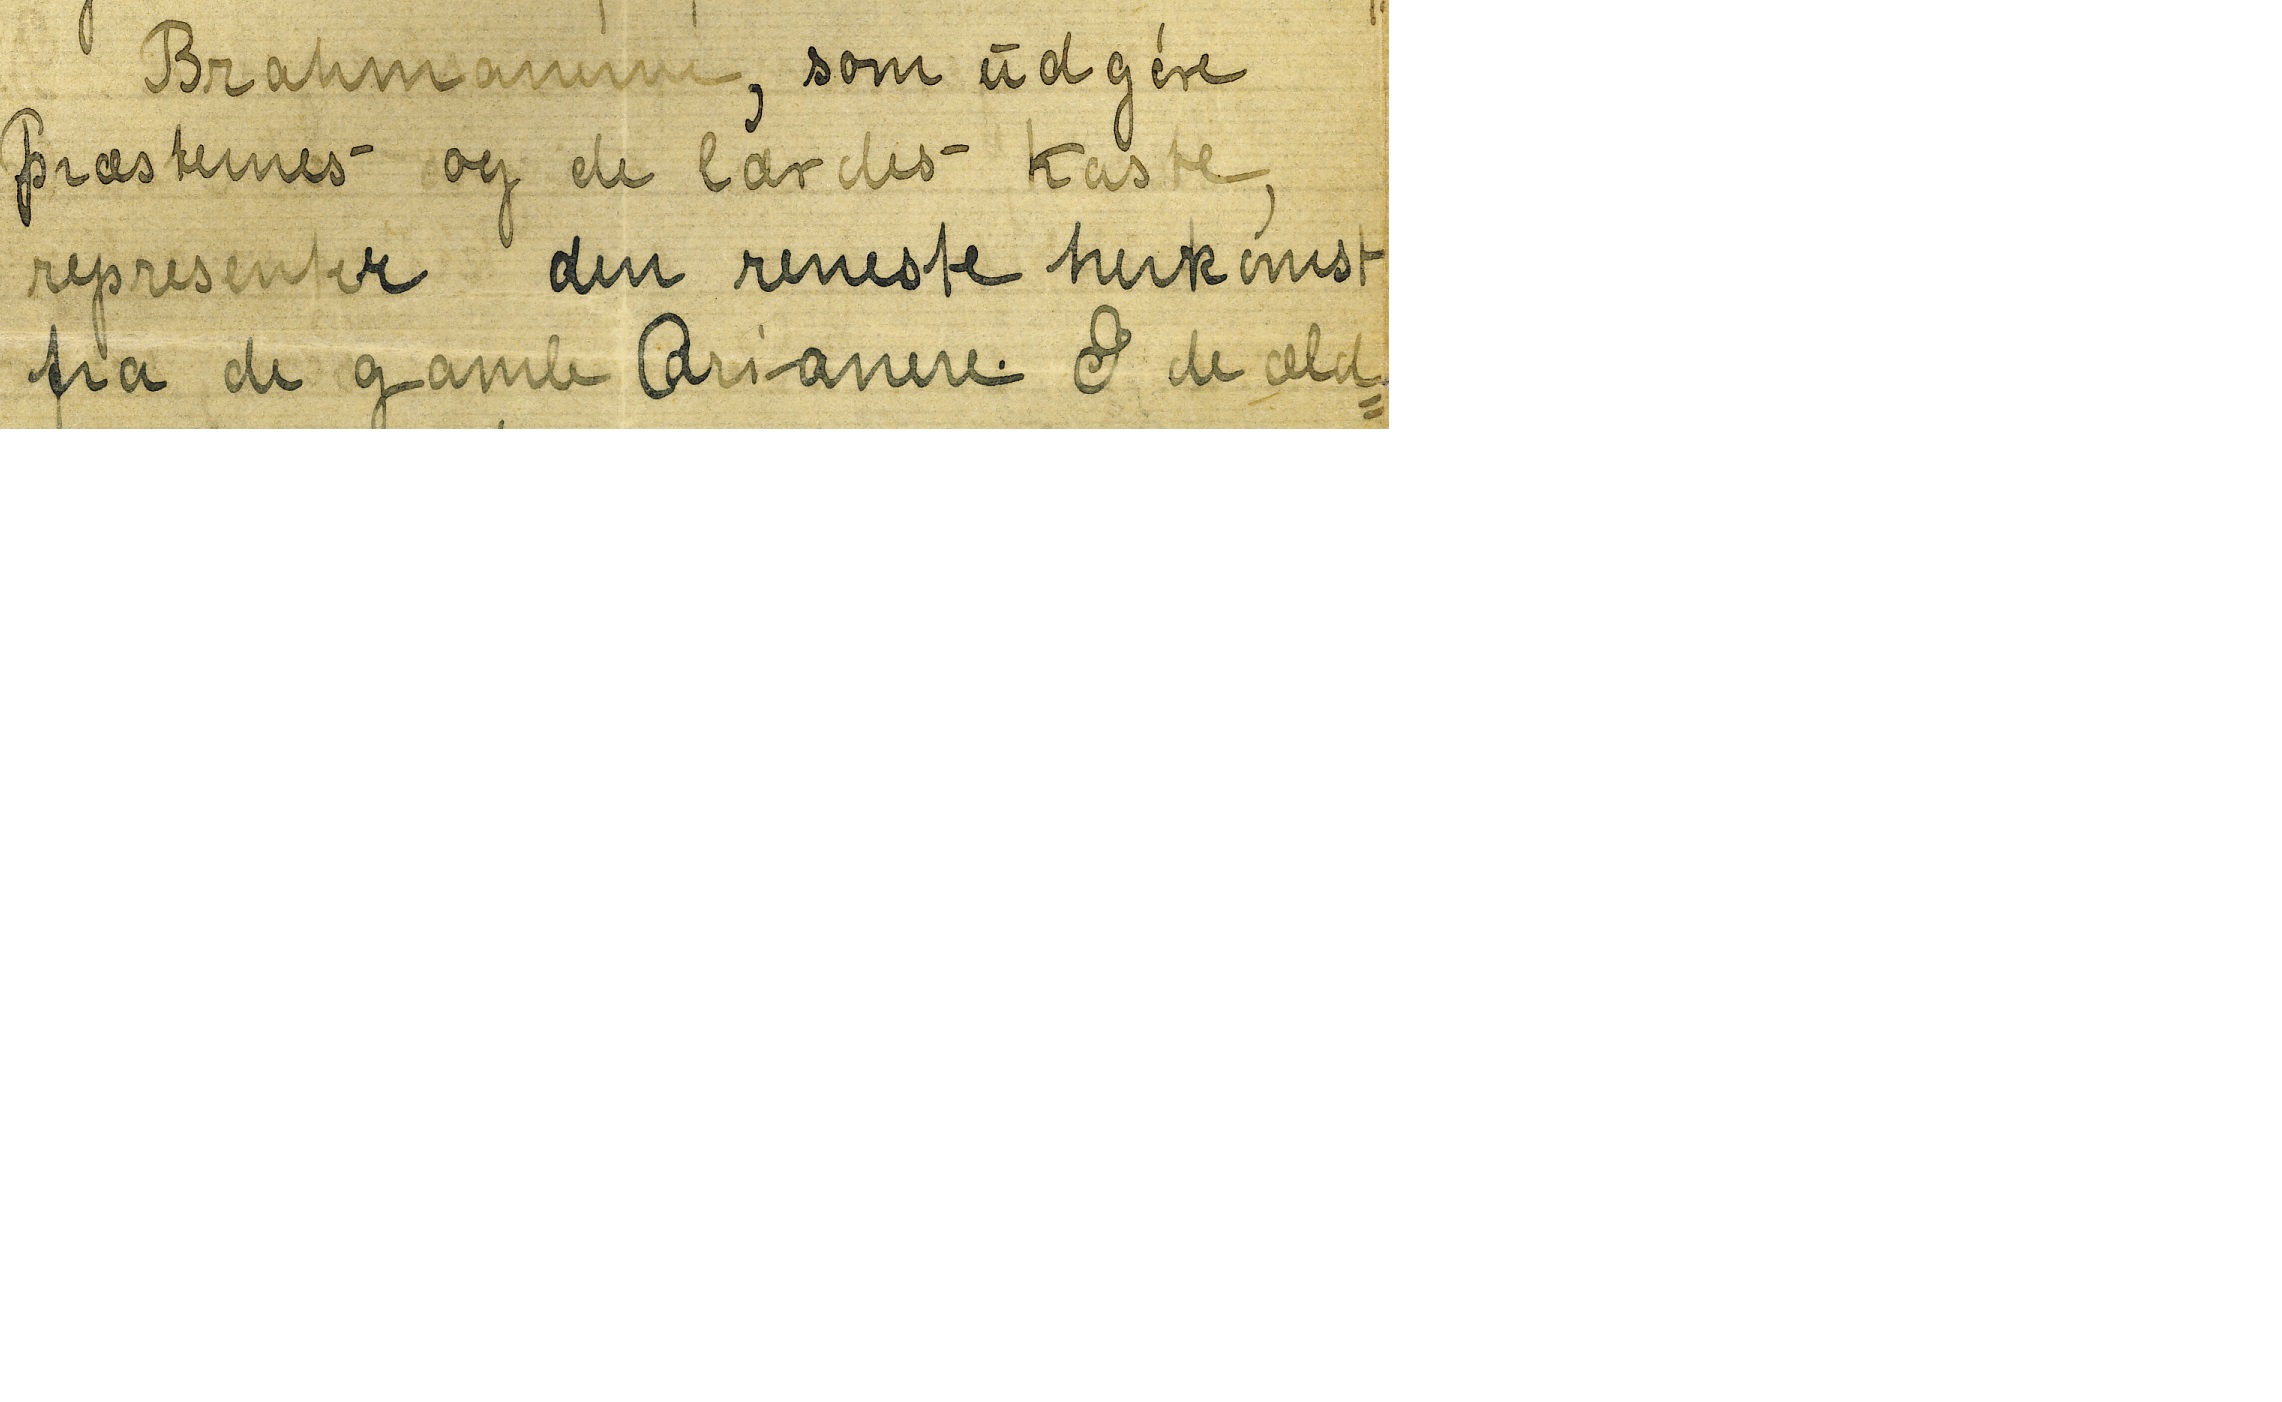 Brahmanerne, som ūdgóre
Præsternes og de lærdes kaste,
representer den reneste herkomst
fra de gamle Arianere. I de æld=